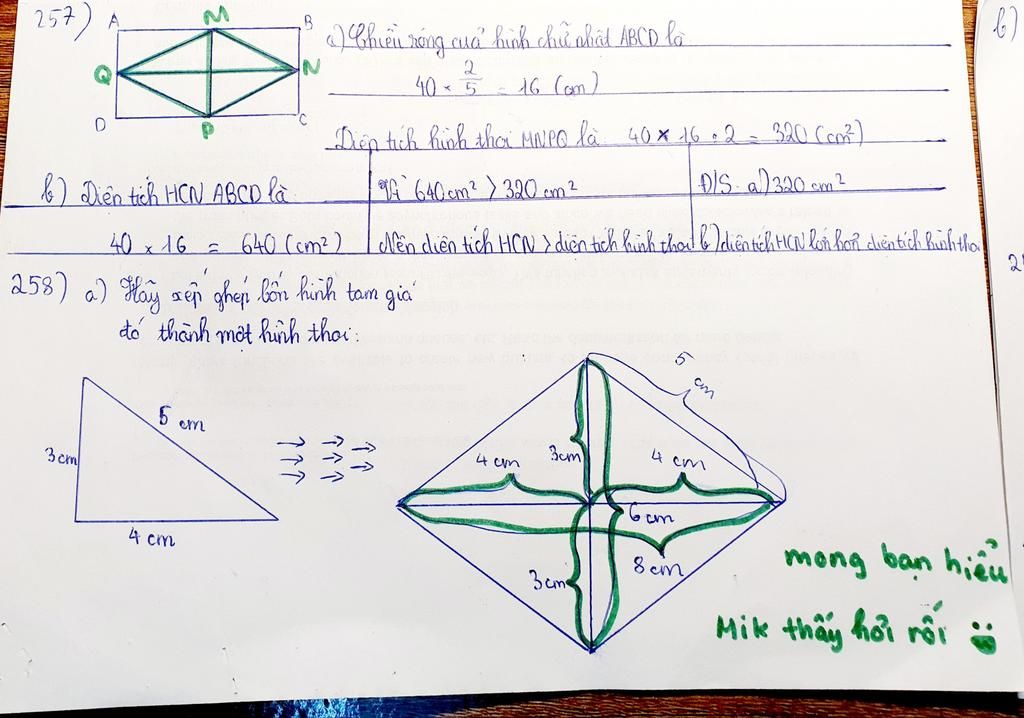 257)
A
M
B
Q
N
D
P
C
a) Chiều rộng của hình chữ nhật ABCD là
40 × 2/5 = 16 (cm)
Diện tích hình thoi MNPQ là 40 × 16 : 2 = 320 (cm²)
b) Diện tích HCN ABCD là:
40 × 16 = 640 (cm²)
Vì 640 cm² > 320 cm²
Nên diện tích HCN > diện tích hình thoi
Đ/S: a) 320 cm²
b) diện tích HCN lớn hơn diện tích hình thoi
258) a) Hãy xếp ghép bốn hình tam giá
đó thành một hình thoi:
3cm
5 cm
4 cm
5 cm
4 cm
3cm
4 cm
6 cm
3cm
8 cm
mong bạn hiểu
Mik thấy hơi rối
b)